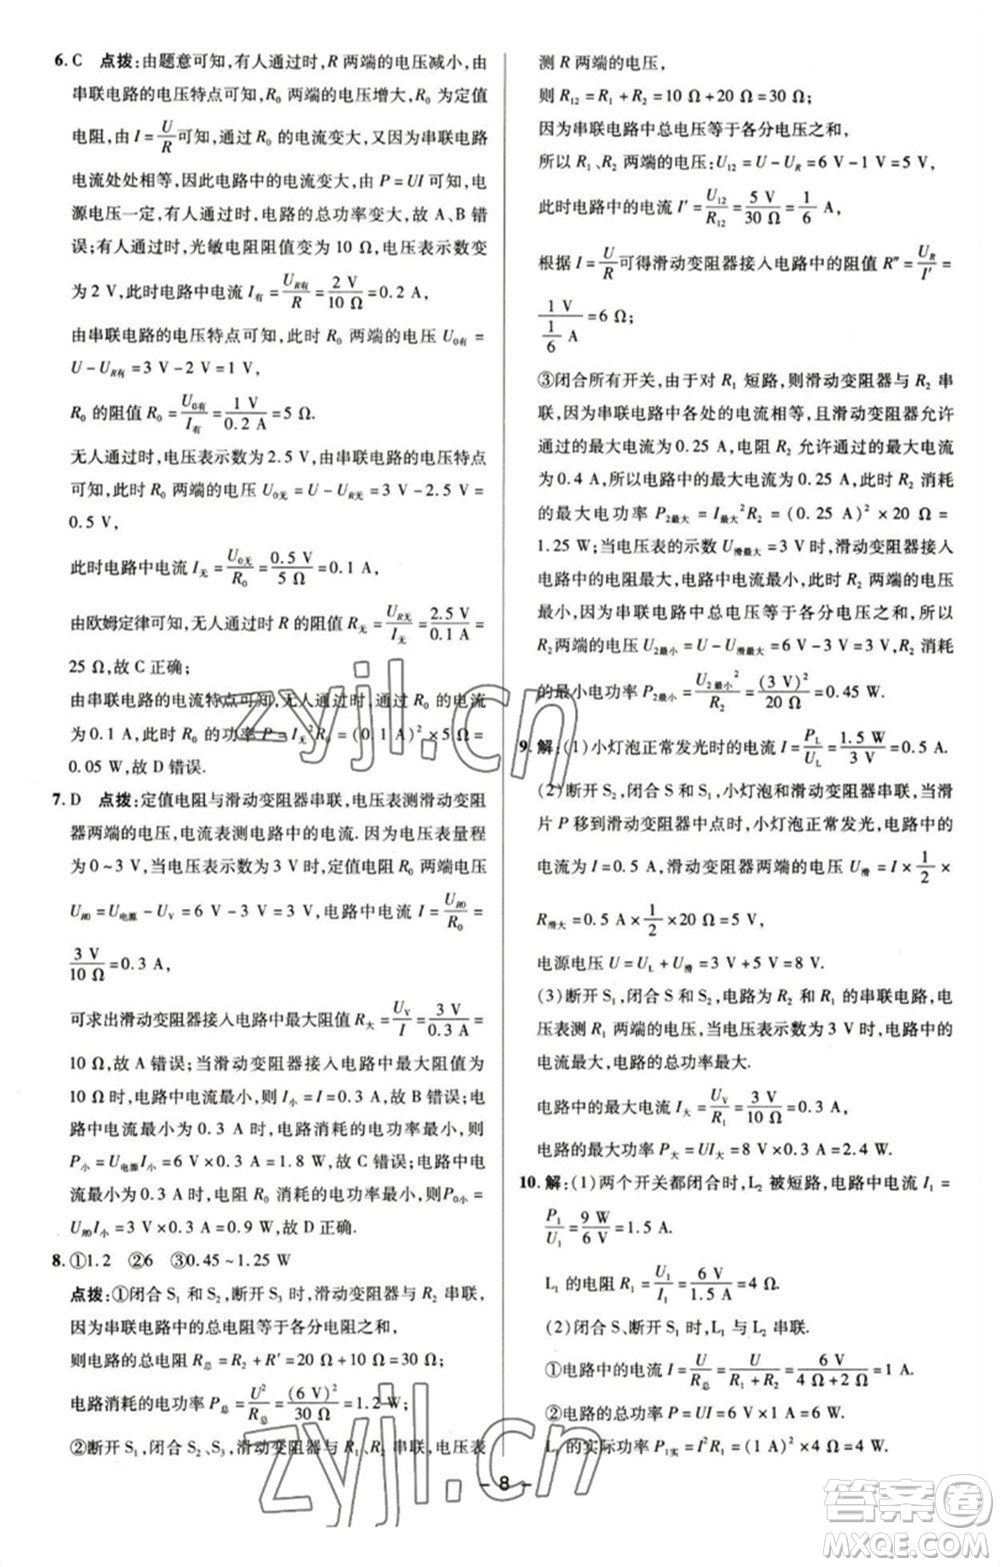 6. C 点拨:由题意可知,有人通过时,R 两端的电压减小,由
串联电路的电压特点可知,R₀ 两端的电压增大,R₀ 为定值
电阻,由 I = U/R 可知,通过 R₀ 的电流变大,又因为串联电路
电流处处相等,因此电路中的电流变大,由 P = UI 可知,电
源电压一定,有人通过时,电路的总功率变大,故 A、B 错
误;有人通过时,光敏电阻阻值变为 10 Ω,电压表示数变
为 2 V,此时电路中电流 I有 = UR有/R = 2 V/10 Ω = 0.2 A,
由串联电路的电压特点可知,此时 R₀ 两端的电压 U₀有 =
U - UR有 = 3 V - 2 V = 1 V,
R₀ 的阻值 R₀ = U₀有/I有 = 1 V/0.2 A = 5 Ω.
无人通过时,电压表示数为 2.5 V,由串联电路的电压特点
可知,此时 R₀ 两端的电压 U₀无 = U - UR无 = 3 V - 2.5 V =
0.5 V,
此时电路中电流 I无 = U₀无/R₀ = 0.5 V/5 Ω = 0.1 A,
由欧姆定律可知,无人通过时 R 的阻值 R无 = UR无/I无 = 2.5 V/0.1 A =
25 Ω,故 C 正确;
由串联电路的电流特点可知,无人通过时,通过 R₀ 的电流
为 0.1 A,此时 R₀ 的功率 P = I无²R₀ = (0.1 A)² × 5 Ω =
0.05 W,故 D 错误.
7. D 点拨:定值电阻与滑动变阻器串联,电压表测滑动变阻
器两端的电压,电流表测电路中的电流. 因为电压表量程
为 0 ~ 3 V,当电压表示数为 3 V 时,定值电阻 R₀ 两端电压
UR0 = U电源 - UV = 6 V - 3 V = 3 V,电路中电流 I = UR0/R₀ =
3 V/10 Ω = 0.3 A,
可求出滑动变阻器接入电路中最大阻值 R大 = UV/I = 3 V/0.3 A =
10 Ω,故 A 错误;当滑动变阻器接入电路中最大阻值为
10 Ω 时,电路中电流最小,I小 = I = 0.3 A,故 B 错误;电
路中电流最小为 0.3 A 时,电路消耗的电功率最小,
P小 = U电源I小 = 6 V × 0.3 A = 1.8 W,故 C 错误;电路中电
流最小为 0.3 A 时,定值电阻 R₀ 消耗的电功率最小,P₀小 =
UR0I小 = 3 V × 0.3 A = 0.9 W,故 D 正确.
8. ①1.2 ②6 ③0.45 ~ 1.25 W
点拨:①闭合 S₁ 和 S₂,断开 S₃ 时,滑动变阻器与 R₂ 串联,
因为串联电路中总电阻等于各分电阻之和,
则电路的总电阻 R总 = R₂ + R′ = 20 Ω + 10 Ω = 30 Ω,
电路消耗的电功率 P总 = U²/R总 = (6 V)²/30 Ω = 1.2 W;
②断开 S₁,闭合 S₂、S₃,滑动变阻器与 R₁、R₂ 串联,电压表
测 R 两端的电压,
则 R₁₂ = R₁ + R₂ = 10 Ω + 20 Ω = 30 Ω;
因为串联电路中总电压等于各分电压之和,
所以 R₁、R₂ 两端的电压:U₁₂ = U - UR = 6 V - 1 V = 5 V,
此时电路中的电流 I′ = U₁₂/R₁₂ = 5 V/30 Ω = 1/6 A,
根据 I = U/R 可得滑动变阻器接入电路中的阻值 R″ = UR/I′ =
1 V/(1/6 A) = 6 Ω;
③闭合所有开关,由于对 R₁ 短路,则滑动变阻器与 R₂ 串
联,因为串联电路中各处的电流相等,且滑动变阻器允许
通过的最大电流为 0.25 A,电阻 R₂ 允许通过的最大电流
为 0.4 A,所以,电路中的最大电流为 0.25 A,此时 R₂ 消耗
的最大电功率 P₂最大 = I最大²R₂ = (0.25 A)² × 20 Ω =
1.25 W;当电压表的示数 U滑最大 = 3 V 时,滑动变阻器接入
电路中的电阻最大,电路中电流最小,R₂ 两端的电压最
小,因为串联电路中总电压等于各分电压之和,所以
R₂两端的电压 U₂最小 = U - U滑最大 = 6 V - 3 V = 3 V,R₂ 消耗
的最小电功率 P₂最小 = U₂最小²/R₂ = (3 V)²/20 Ω = 0.45 W.
9. 解:(1)小灯泡正常发光时的电流 I = PL/UL = 1.5 W/3 V = 0.5 A.
(2)断开 S₂,闭合 S 和 S₁,小灯泡和滑动变阻器串联,当滑
片 P 移到滑动变阻器中点时,小灯泡正常发光,电路中的
电流为 I = 0.5 A,滑动变阻器两端的电压 U滑 = I × 1/2 ×
R滑大 = 0.5 A × 1/2 × 20 Ω = 5 V,
电源电压 U = UL + U滑 = 3 V + 5 V = 8 V.
(3)断开 S₁,闭合 S 和 S₂,电路为 R₁ 和 R滑的串联电路,电
压表测 R₁ 两端的电压,当电压表的示数为 3 V 时,电路中的
电流最大,电路的总功率最大.
电路中的最大电流 I大 = UV/R₁ = 3 V/10 Ω = 0.3 A,
电路的最大功率 P大 = UI大 = 8 V × 0.3 A = 2.4 W.
10. 解:(1)两个开关都闭合时,L₂ 被短路,电路中电流 I₁ =
P₁/U₁ = 9 W/6 V = 1.5 A.
L₁ 的电阻 R₁ = U₁/I₁ = 6 V/1.5 A = 4 Ω.
(2)闭合 S、断开 S₁,L₁ 与 L₂ 串联.
①电路中的电流 I = U/R总 = U/(R₁ + R₂) = 6 V/(4 Ω + 2 Ω) = 1 A.
②电路的总功率 P = UI = 6 V × 1 A = 6 W.
L₁ 的实际功率 P₁实 = I²R₁ = (1 A)² × 4 Ω = 4 W.
- 8 -
zyjl.cn
zyjl.cn
答案圈
MXQE.COM